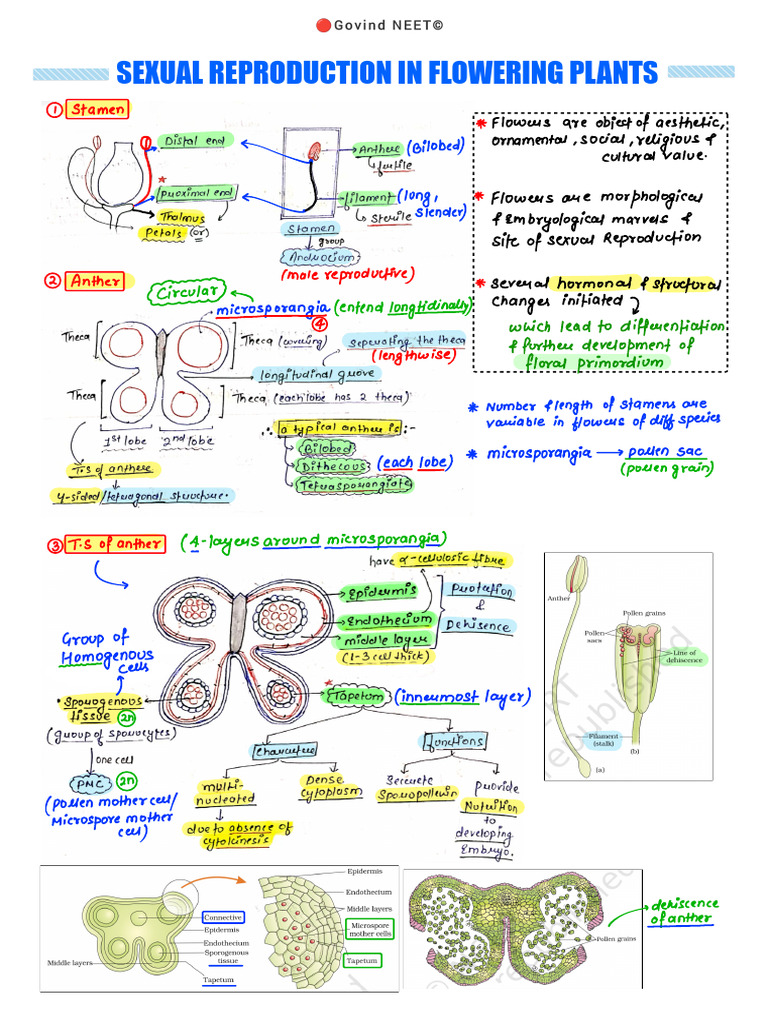 Govind NEET©
SEXUAL REPRODUCTION IN FLOWERING PLANTS
① Stamen
Distal end
Proximal end
Thalmus
(or)
Petals
Anther (Bilobed)
fertile
filament (long, slender)
Sterile
Stamen
group
Androecium
(male reproductive)
* Flowers are object of aesthetic,
ornamental, social, religious &
cultural value.
* Flowers are morphological
& Embryological marvels &
site of sexual Reproduction
* several hormonal & structural
changes initiated
which lead to differentiation
& further development of
floral primordium
② Anther
Circular
microsporangia (entend longtidinally)
④
Theca
Theca (covering)
seperating the theca
(lengthwise)
longitudinal groove
Theca
Theca (each lobe has 2 theca)
1st lobe
2nd lobe
∴ a typical anther is :-
Bilobed
Dithecous (each lobe)
Tetrasporangiate
T.S of anther
4-sided/tetragonal structure.
* Number & length of stamens are
variable in flowers of diff species
* microsporangia → pollen sac
(pollen grain)
③ T.S of anther (4-layers around microsporangia)
have α-cellulosic fibre
Epidermis
Endothecium
middle layer
(1-3 cell thick)
Protection
&
Dehisence
Group of
Homogenous
cells
* Tapetum (innermost layer)
Sporogenous
tissue 2n
(group of sporocytes)
one cell
PMC 2n
(Pollen mother cell/
Microspore mother
cell)
Characters
functions
multi-
nucleated
due to absence of
cytokinesis
Dense
cytoplasm
Secrete
Sporopollenin
Provide
Nutrition
to
developing
Embryo.
Anther
Pollen grains
Pollen
sacs
Line of
dehiscence
Filament
(stalk)
(a)
(b)
Connective
Epidermis
Endothecium
Sporogenous
tissue
Middle layers
Tapetum
Epidermis
Endothecium
Middle layers
Microspore
mother cells
Tapetum
Pollen grains
dehiscence
of anther